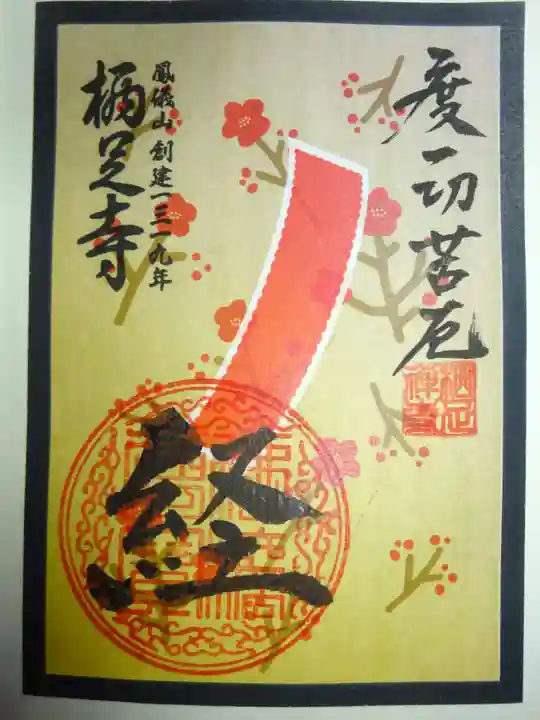 度一切苦厄
鳳儀山 創建一三一九年
栖足寺